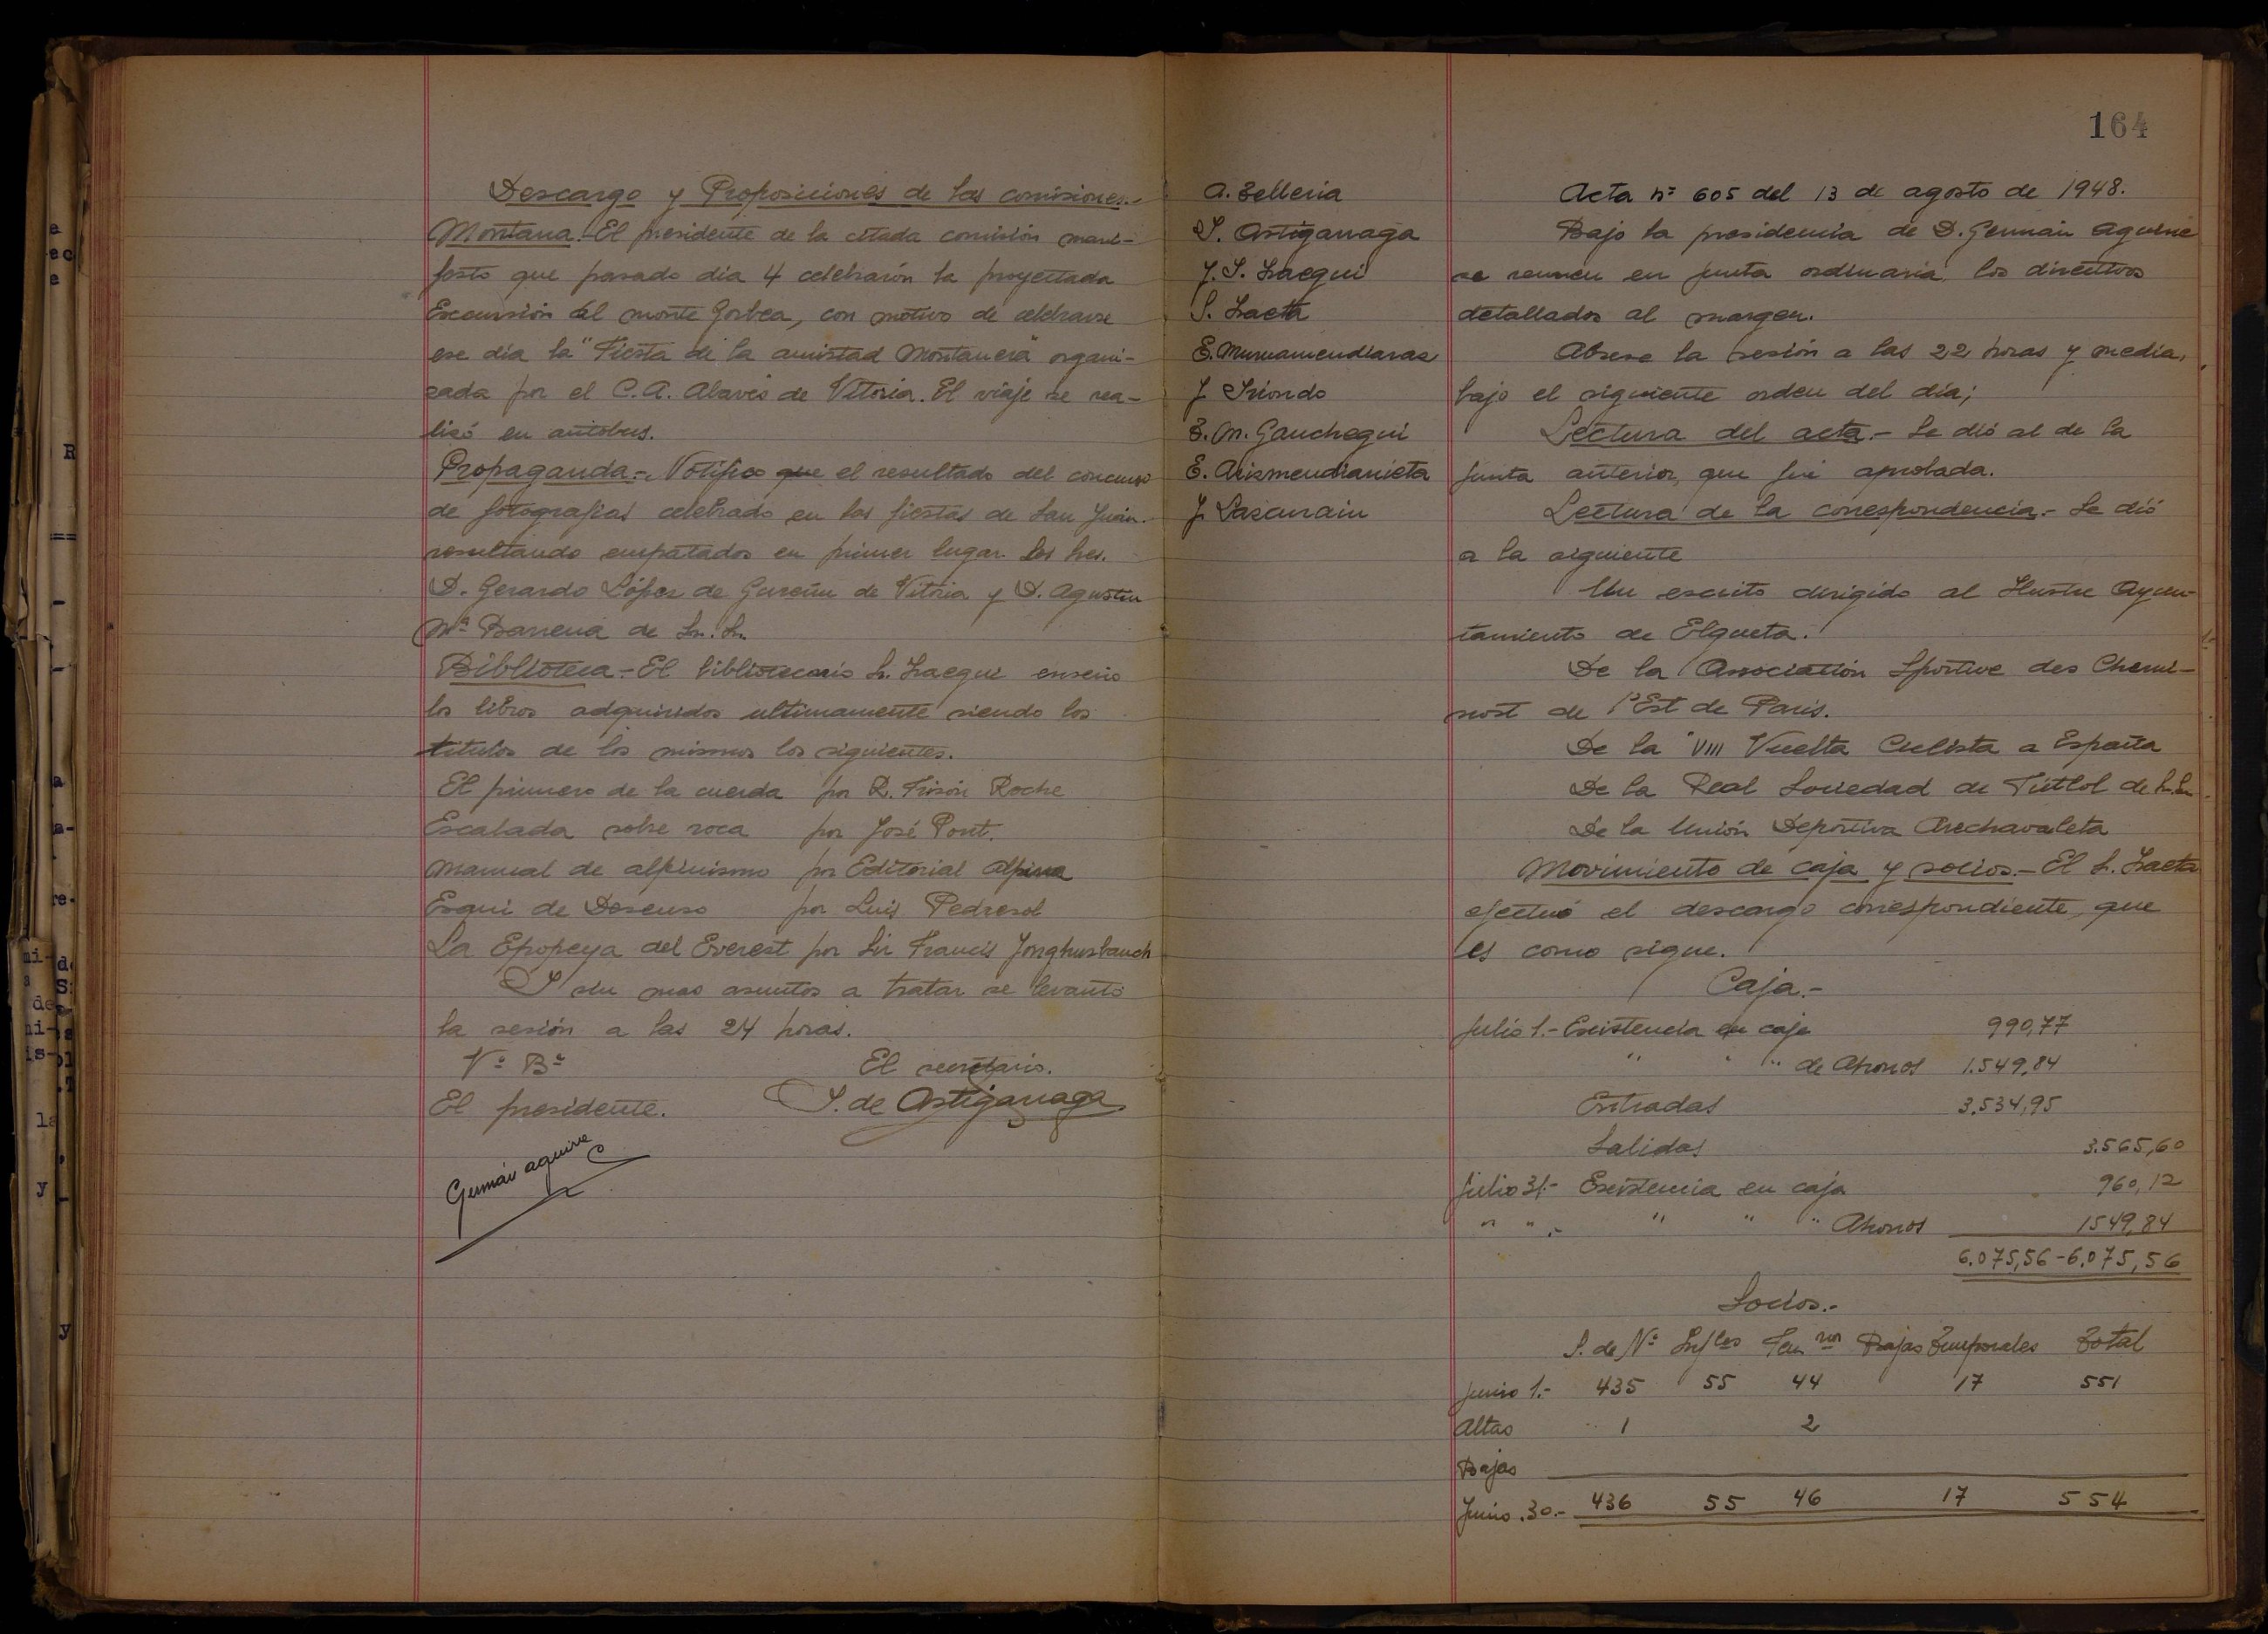 Descargo y Proposiciones de las comisiones.-
Montaña.- El presidente de la citada comisión mani-
festo que pasado dia 4 celebrarón la proyectada
Excursión al monte Gorbea, con motivo de celebrarse
ese dia la "Fiesta de la amistad Montañera" organi-
zada por el C.A. Alavés de Vitoria. El viaje se rea-
lizó en autobus.
Propaganda.- Notifico que el resultado del concurso
de fotografias celebrado en las fiestas de San Juan.
resultando empatados en primer lugar. los Sres.
D. Gerardo López de Guereñu de Vitoria y D. Agustin
Mª Barrena de Sn. Sn.
Biblioteca.- El bibliotecario Sr. Isaegui enseño
los libros adquiridos ultimamente siendo los
titulos de los mismos los siguientes.
El primero de la cuerda por R. Frison Roche
Escalada sobre roca por José Pont.
Manual de alpinismo por Editorial Alpina
Esqui de Descenso por Luis Pedrerol
La Epopeya del Everest por Sir Francis Jonghusbauch
Y sin mas asuntos a tratar se levantó
la sesión a las 24 horas.
Vº Bº El secretario.
El presidente. Y. de Astigarraga
Germán Aguirre
164
A. Telleria
Y. Astigarraga
J. I. Isaegui
S. Isaeta
E. Murumendiaraz
J. Iriondo
T. M. Ganchegui
E. Arismendiarrieta
J. Lascurain
Acta nº 605 del 13 de agosto de 1948.
Bajo la presidencia de D. Germán Aguirre
se reunen en junta ordinaria los directivos
detallados al margen.
Abrese la sesión a las 22 horas y media,
bajo el siguiente orden del día;
Lectura del acta.- Se dió al de la
junta anterior, que fué aprobada.
Lectura de la correspondencia.- Se dió
a la siguiente
Un escrito dirigido al Ilustre Ayun-
tamiento de Elgueta.
De la Association Sportive des Chemi-
nost de l'Est de Paris.
De la VIII Vuelta Ciclista a España
De la Real Sociedad de Fútbol de S. Sn.
De la Unión Deportiva Arechavaleta
Movimiento de caja y socios.- El Sr. Isaeta
efectuó el descargo correspondiente, que
es como sigue.
Caja.-
Julio 1.- Existencia en caja 990,77
" " " de Ahorros 1.549,84
Entradas 3.534,95
Salidas 3.565,60
Julio 31.- Existencia en caja 960,12
" " .- " " " Ahorros 1549,84
6.075,56 - 6.075,56
Socios.-
S. de Nº Inf les Fem nos Bajas Temporales Total
Junio 1.- 435 55 44 17 551
Altas 1 2
Bajas
Junio .30.- 436 55 46 17 554